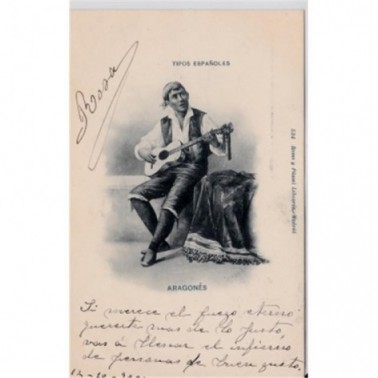 TIPOS ESPAÑOLES
Rosa
534 Romo y Füssel Librería-Madrid
ARAGONÉS
Si merece el fuego eterno
quererte mas de lo justo
vas á llenar el infierno
de personas de buen gusto.